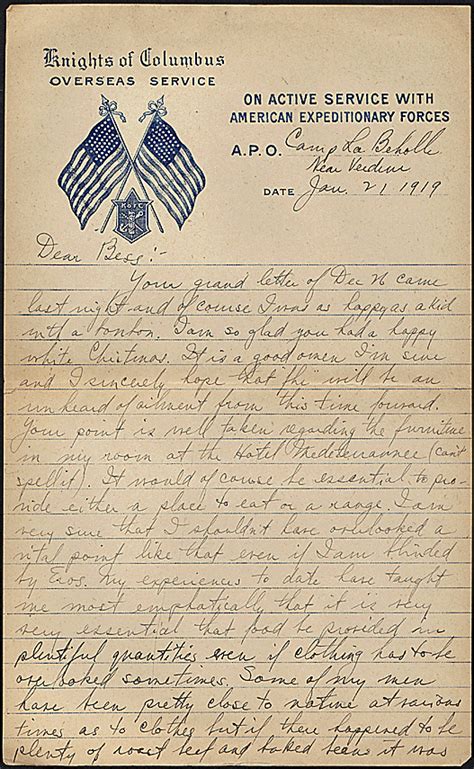 Knights of Columbus
OVERSEAS SERVICE
ON ACTIVE SERVICE WITH
AMERICAN EXPEDITIONARY FORCES
A.P.O. Camp La Beholle
Near Verdun
DATE Jan. 21 1919
K of C
Dear Bess:-
Your grand letter of Dec 26 came
last night and of course I was as happy as a kid
with a bonbon. I am so glad you had a happy
white Christmas. It is a good omen I'm sure
and I sincerely hope that the will be an
unheard of ailment from this time forward.
Your point is well taken regarding the furniture
in my room at the Hotel Mediterrannee (cant
spell it). It would of course be essential to pro-
vide either a place to eat or a range. I am
very sure that I shouldn't have overlooked a
vital point like that even if I am blinded
by Eros. My experiences to date have taught
me most emphatically that it is very
very essential that food be provided in
plentiful quantities even if clothing has to be
overlooked sometimes. Some of my men
have been pretty close to nature at various
times as to clothes but if there happened to be
plenty of roast beef and baked beans it was